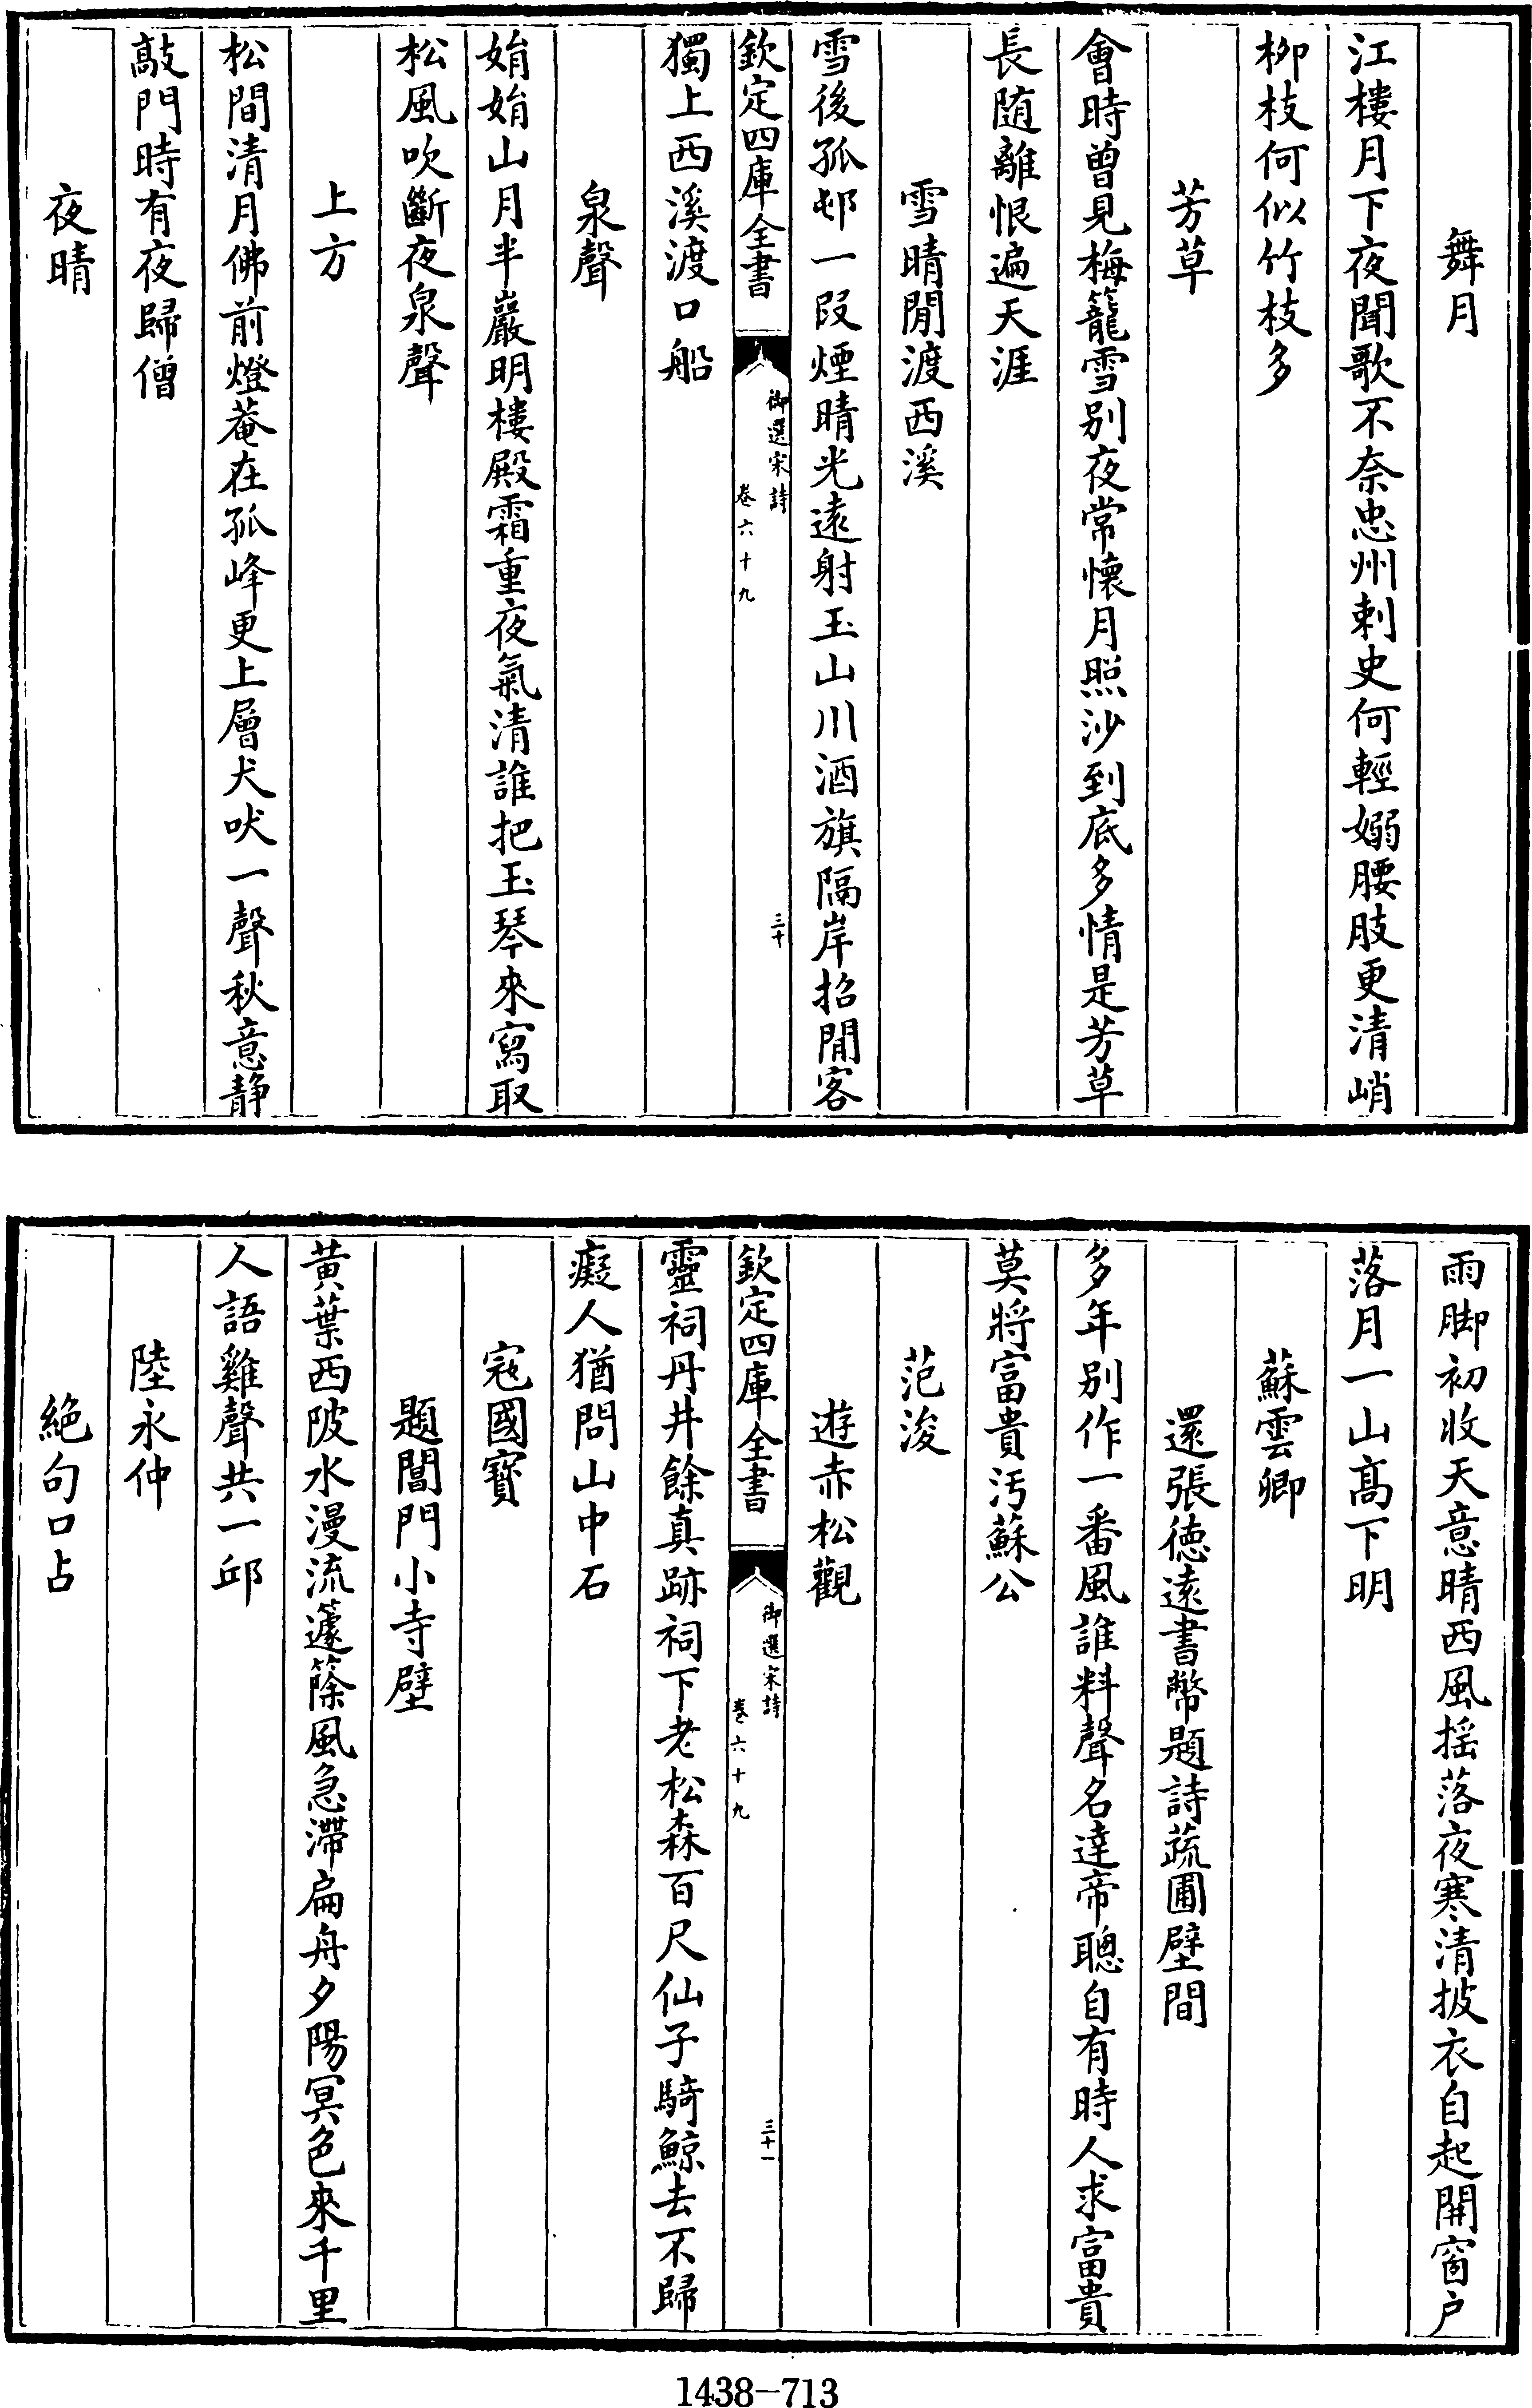 舞月
江樓月下夜聞歌不奈忠州刺史何輕嫋腰肢更清峭
柳枝何似竹枝多
芳草
會時曾見梅籠雪別夜常懷月照沙到底多情是芳草
長随離恨遍天涯
雪晴閒渡西溪
雪後孤邨一段煙晴光遠射玉山川酒旗隔岸招閒客
欽定四庫全書
御選宋詩
卷六十九
三十
獨上西溪渡口船
泉聲
娟娟山月半巖明樓殿霜重夜氣清誰把玉琴來寫取
松風吹斷夜泉聲
上方
松間清月佛前燈菴在孤峰更上層犬吠一聲秋意静
敲門時有夜歸僧
夜晴
雨脚初收天意晴西風揺落夜寒清披衣自起開窗户
落月一山髙下明
蘇雲卿
還張徳遠書幣題詩蔬圃壁間
多年别作一番風誰料聲名達帝聰自有時人求富貴
莫將富貴汚蘇公
范浚
遊赤松觀
欽定四庫全書
御選宋詩
卷六十九
三十一
靈祠丹井餘真跡祠下老松森百尺仙子騎鯨去不歸
癡人猶問山中石
寇國寳
題閶門小寺壁
黄葉西陂水漫流籧篨風急滯扁舟夕陽冥色來千里
人語雞聲共一邱
陸永仲
絶句口占
1438-713